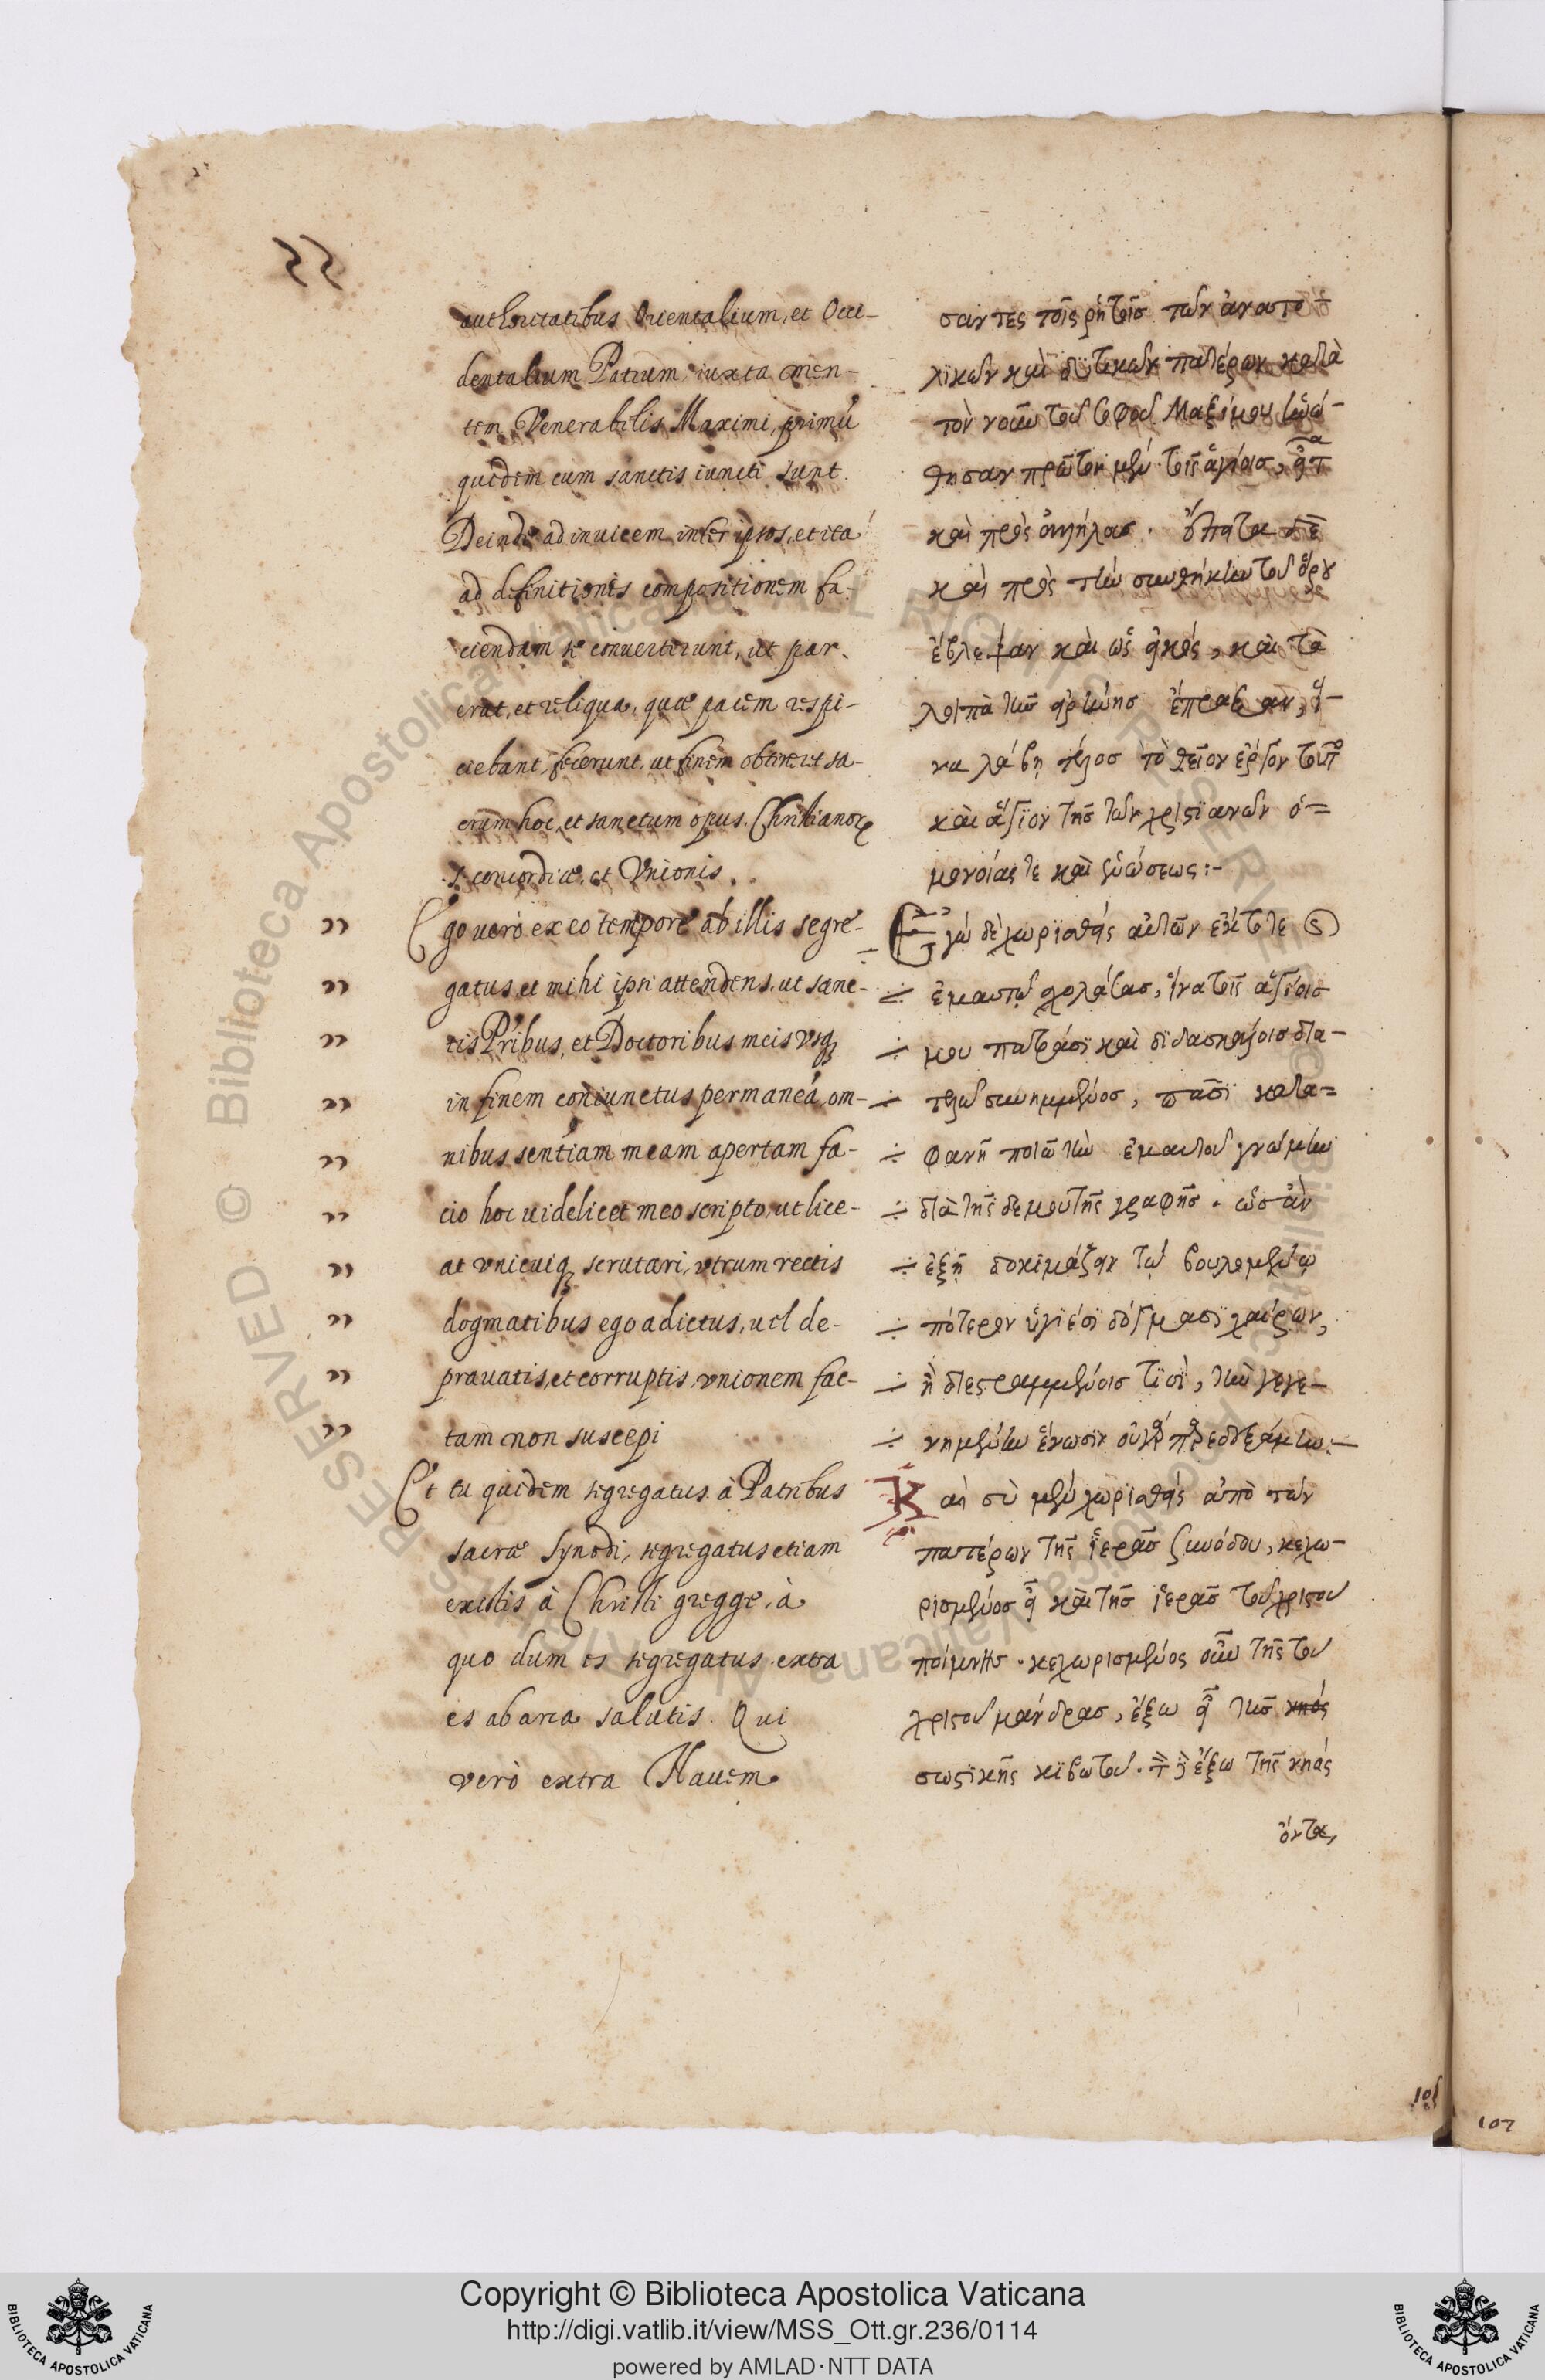 authoritatibus Orientalium, et Occi-
dentalium Patrum iuxta men-
tem Venerabilis Maximi, primú
quidem eum sanctis iuncti sunt.
Deinde ad inuicem inter ipsos, et ita
ad definitionis compositionem fa-
ciendam se conuerterunt, ut par
erat, et reliqua, quæ pacem respi-
ciebant, fecerunt, ut finem obtineret sa-
crum hoc, et sanctum opus. Christianorꝝ
s. concordiæ, et Vnionis.
Ego uerò ex eo tempore ab illis segre-
gatus, et mihi ipsi attendens, ut sanc-
tis Pribus, et Doctoribus meis usq
in finem coniunctus permaneá, om-
nibus sentiam meam apertam fa-
cio hoc uidelicet meo scripto, ut lice-
at vnicuiq scrutari, vtrum rectis
dogmatibus ego adictus, uel de-
prauatis, et corruptis, vnionem fac-
tam non suscepi
Et tu quidem segregatus à Patribus
sacræ Synodi, segregatus etiam
existis à Christi gregge, à
quo dum es segregatus extra
es ab arca salutis. Qui
verò extra Nauem
σαντες τοῖς ῥητοῖς τῶν ἀνατο
λικῶν καὶ δυτικῶν πατέρων κατὰ
τὸν νοῦν τοῦ σοφοῦ Μαξίμου ἑνώ-
θησαν πρῶτον μὲν τοῖς ἁγίοις,
καὶ πρὸς ἀλλήλους.
καὶ πρὸς τὴν συνθήκην τοῦ ὅρου
ἔβλεψαν καὶ ὡς εἰκός, καὶ τὰ
λοιπὰ τῆς εἰρήνης ἔπραξαν, ἵ-
να λάβη τέλος τὸ θεῖον ἔργον
καὶ ἅγϊον τῆς τῶν χριστϊανῶν ὁ=
μονοίας τε καὶ ἑνώσεως:-
Ἐγὼ δὲ χωρϊσθείς αὐτῶν ἔκτοτε
ἐμαυτῷ σχολάσας, ἵνα τοῖς ἁγίοις
μου πατράσϊ καὶ διδασκάλοις δια-
τελῶ συνημμένος, πᾶσϊ κατα=
φανῆ ποιῶ τὴν ἐμαυτοῦ γνώμην
διὰ τῆς δέ μου τῆς γραφῆς. ὡς ἂν
ἐξῆ δοκιμάζειν τῷ βουλομένῳ
πότερον ὑγιέσϊ δόγμασϊ χαίρων,
ἢ διεστραμμένοις τισὶ, τὴν γεγε-
νημένην ἕνωσϊν οὐ προσεδεξάμην.-
Καὶ σὺ μὲν χωρϊσθείς ἀπὸ τῶν
πατέρων τῆς ἱερᾶς συνόδου, κεχω-
ρισμένος εἶ καὶ τῆς ἱερᾶς τοῦ χριστοῦ
ποίμνης. κεχωρισμένος οὖν τῆς τοῦ
χριστοῦ μάνδρας, ἔξω εἶ τῆς νηός
σωστϊκῆς κϊβωτοῦ. τὸν δὲ ἔξω τῆς νηός
ὄντα,
105
107
Copyright © Biblioteca Apostolica Vaticana
http://digi.vatlib.it/view/MSS_Ott.gr.236/0114
powered by AMLAD·NTT DATA